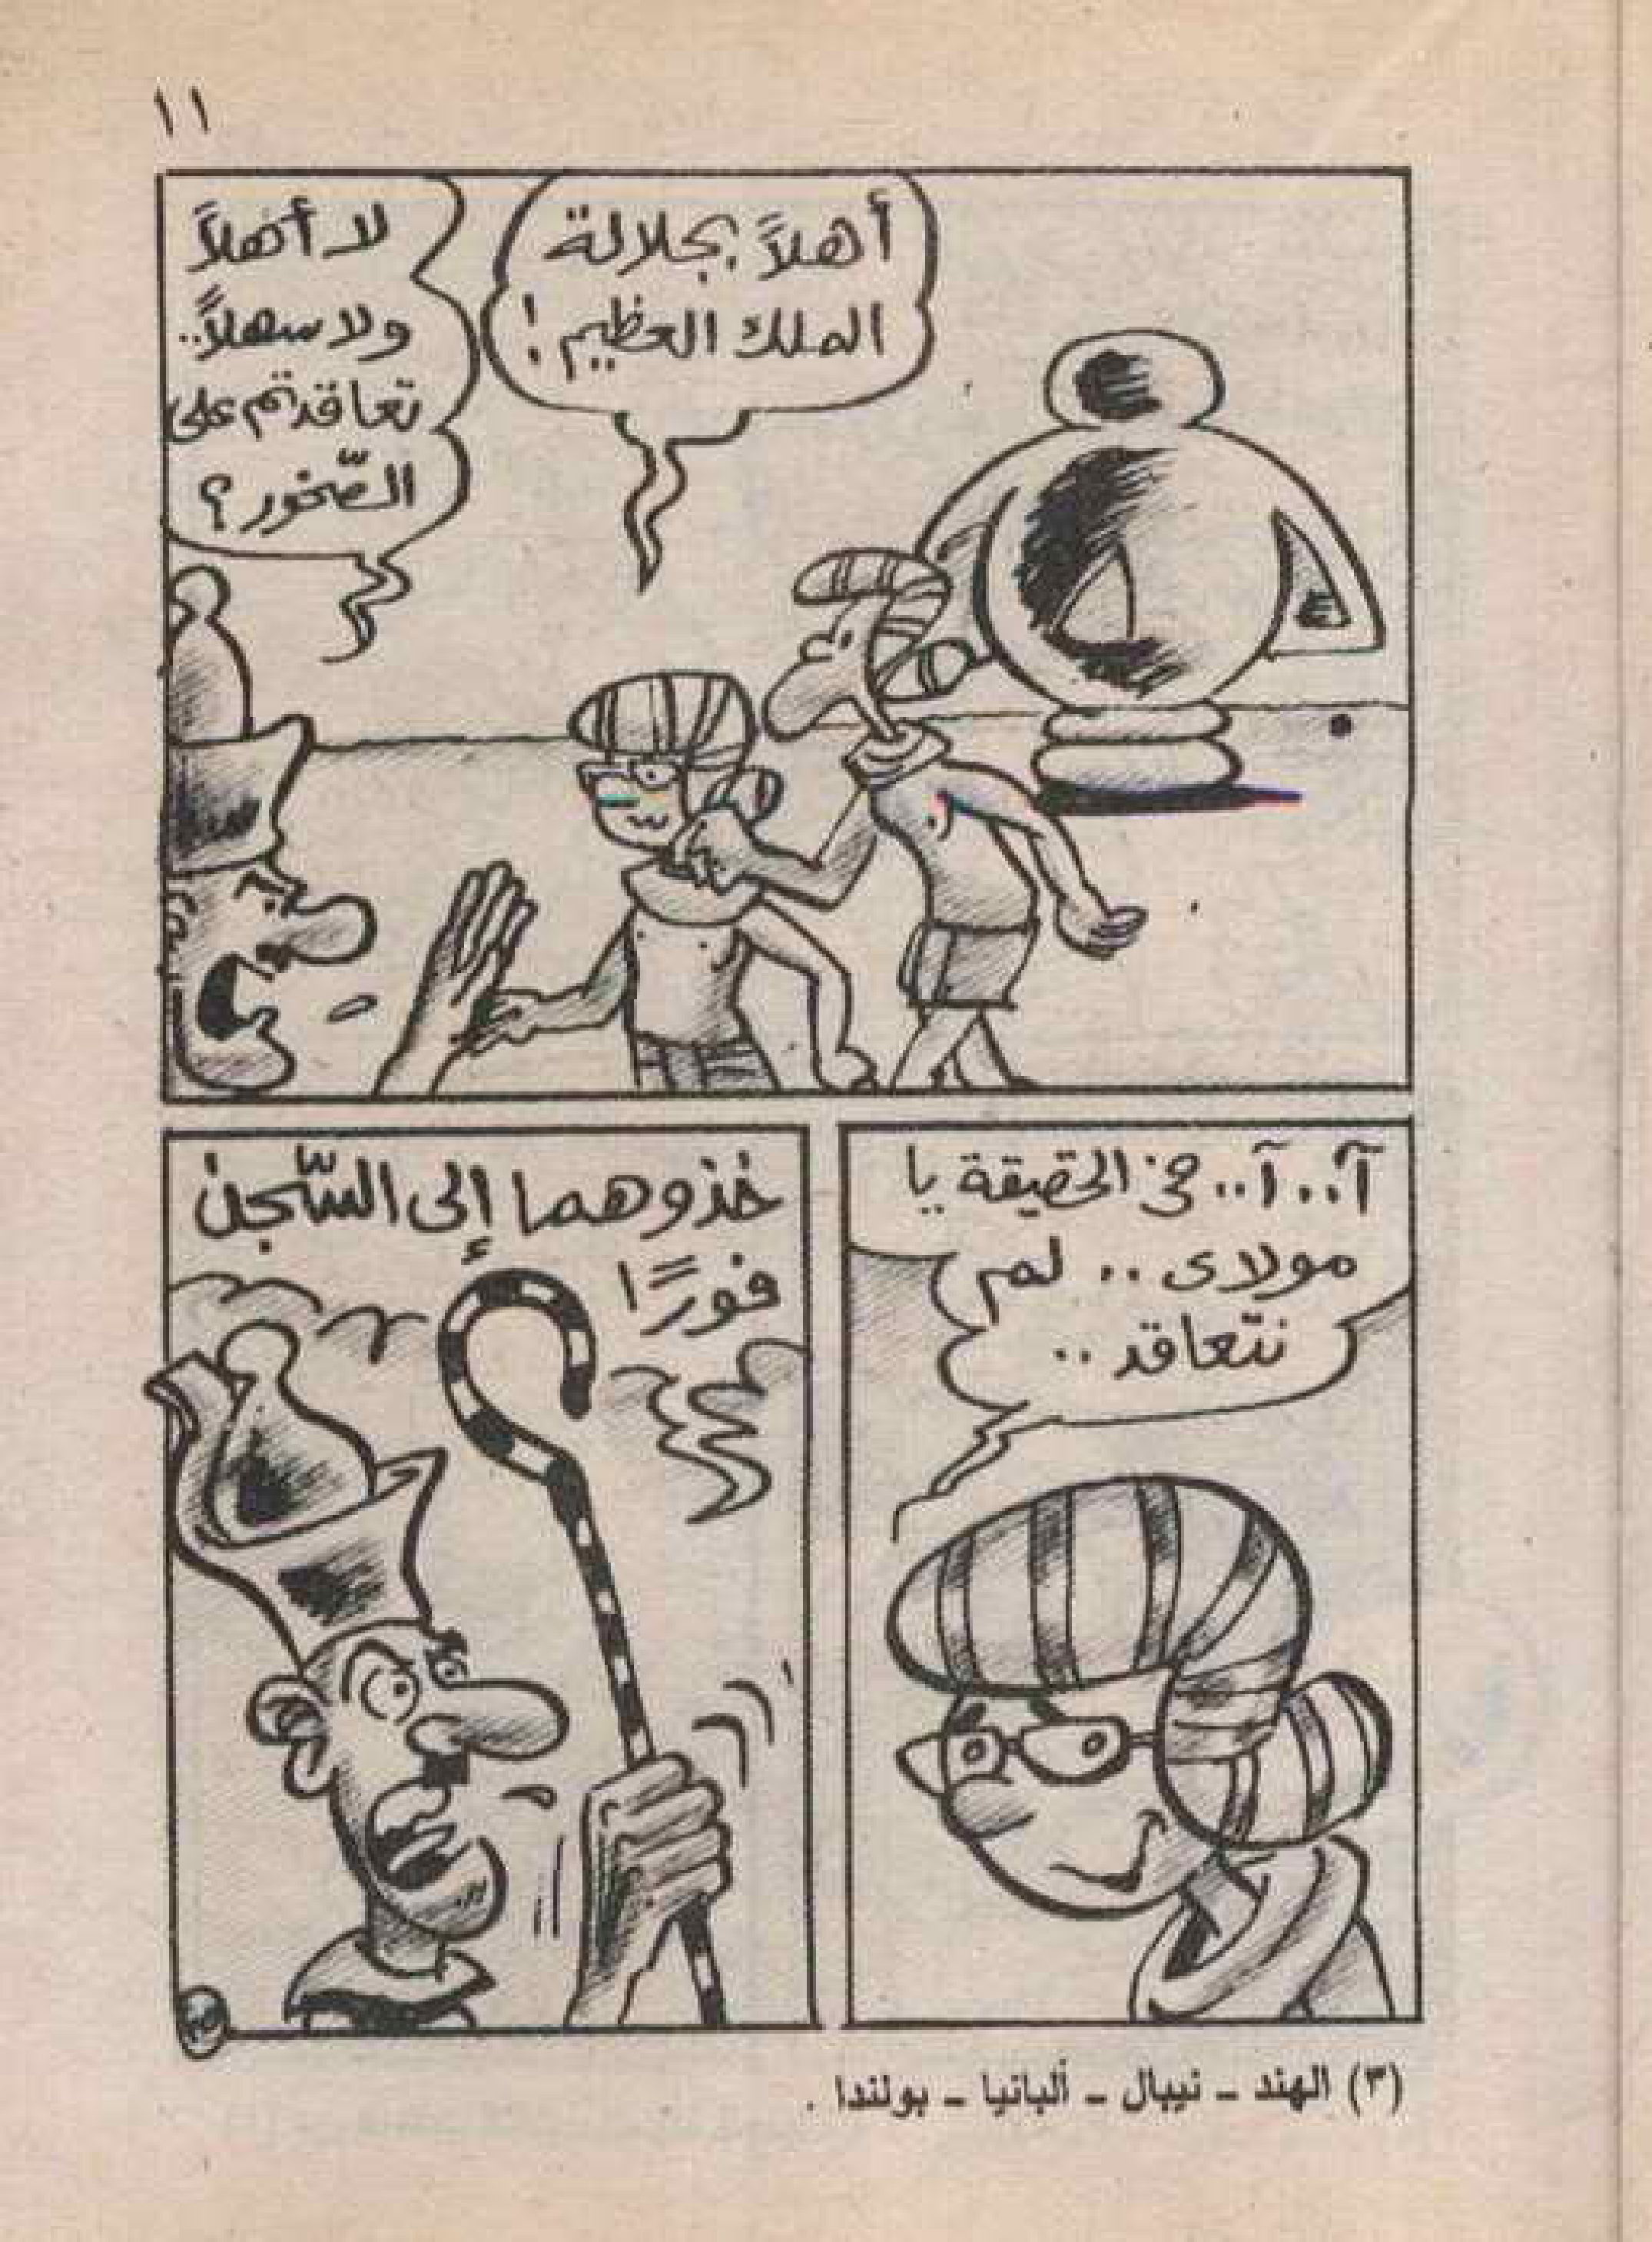 ١١
أهلاً بجلالة
الملك العظيم!
لا أهلاً
ولا سهلاً..
تعاقدتم على
الصّخور؟
آ.. آ.. في الحقيقة يا
مولاى .. لم
نتعاقد ..
خذوهما إلى السّجن
فورًا
(٣) الهند - نيبال - ألبانيا - بولندا .